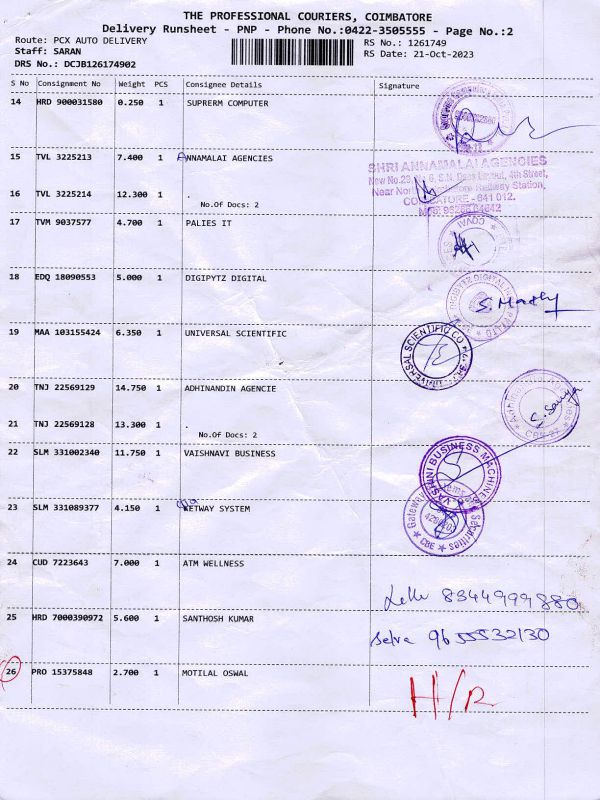 THE PROFESSIONAL COURIERS, COIMBATORE
Delivery Runsheet - PNP - Phone No.:0422-3505555 - Page No.:2
Route: PCX AUTO DELIVERY
RS No.: 1261749
Staff: SARAN
RS Date: 21-Oct-2023
DRS No.: DCJB126174902
S No Consignment No Weight PCS Consignee Details Signature
14 HRD 900031580 0.250 1 SUPRERM COMPUTER
15 TVL 3225213 7.400 1 ANNAMALAI AGENCIES
SHRI ANNAMALAI AGENCIES
New No.23, S.N. Layout, 4th Street,
Near North Coimbatore Railway Station,
COIMBATORE - 641 012.
16 TVL 3225214 12.300 1 .
No.Of Docs: 2
17 TVM 9037577 4.700 1 PALIES IT
KOVAI
18 EDQ 18090553 5.000 1 DIGIPYTZ DIGITAL
19 MAA 103155424 6.350 1 UNIVERSAL SCIENTIFIC
20 TNJ 22569129 14.750 1 ADHINANDIN AGENCIE
21 TNJ 22569128 13.300 1 .
No.Of Docs: 2
22 SLM 331002340 11.750 1 VAISHNAVI BUSINESS
VAISHNAVI BUSINESS MACHINES
23 SLM 331089377 4.150 1 KETWAY SYSTEM
Gateway Securities
CBE
24 CUD 7223643 7.000 1 ATM WELLNESS
8344999880
25 HRD 7000390972 5.600 1 SANTHOSH KUMAR
Selva 9655532130
26 PRO 15375848 2.700 1 MOTILAL OSWAL
H/R